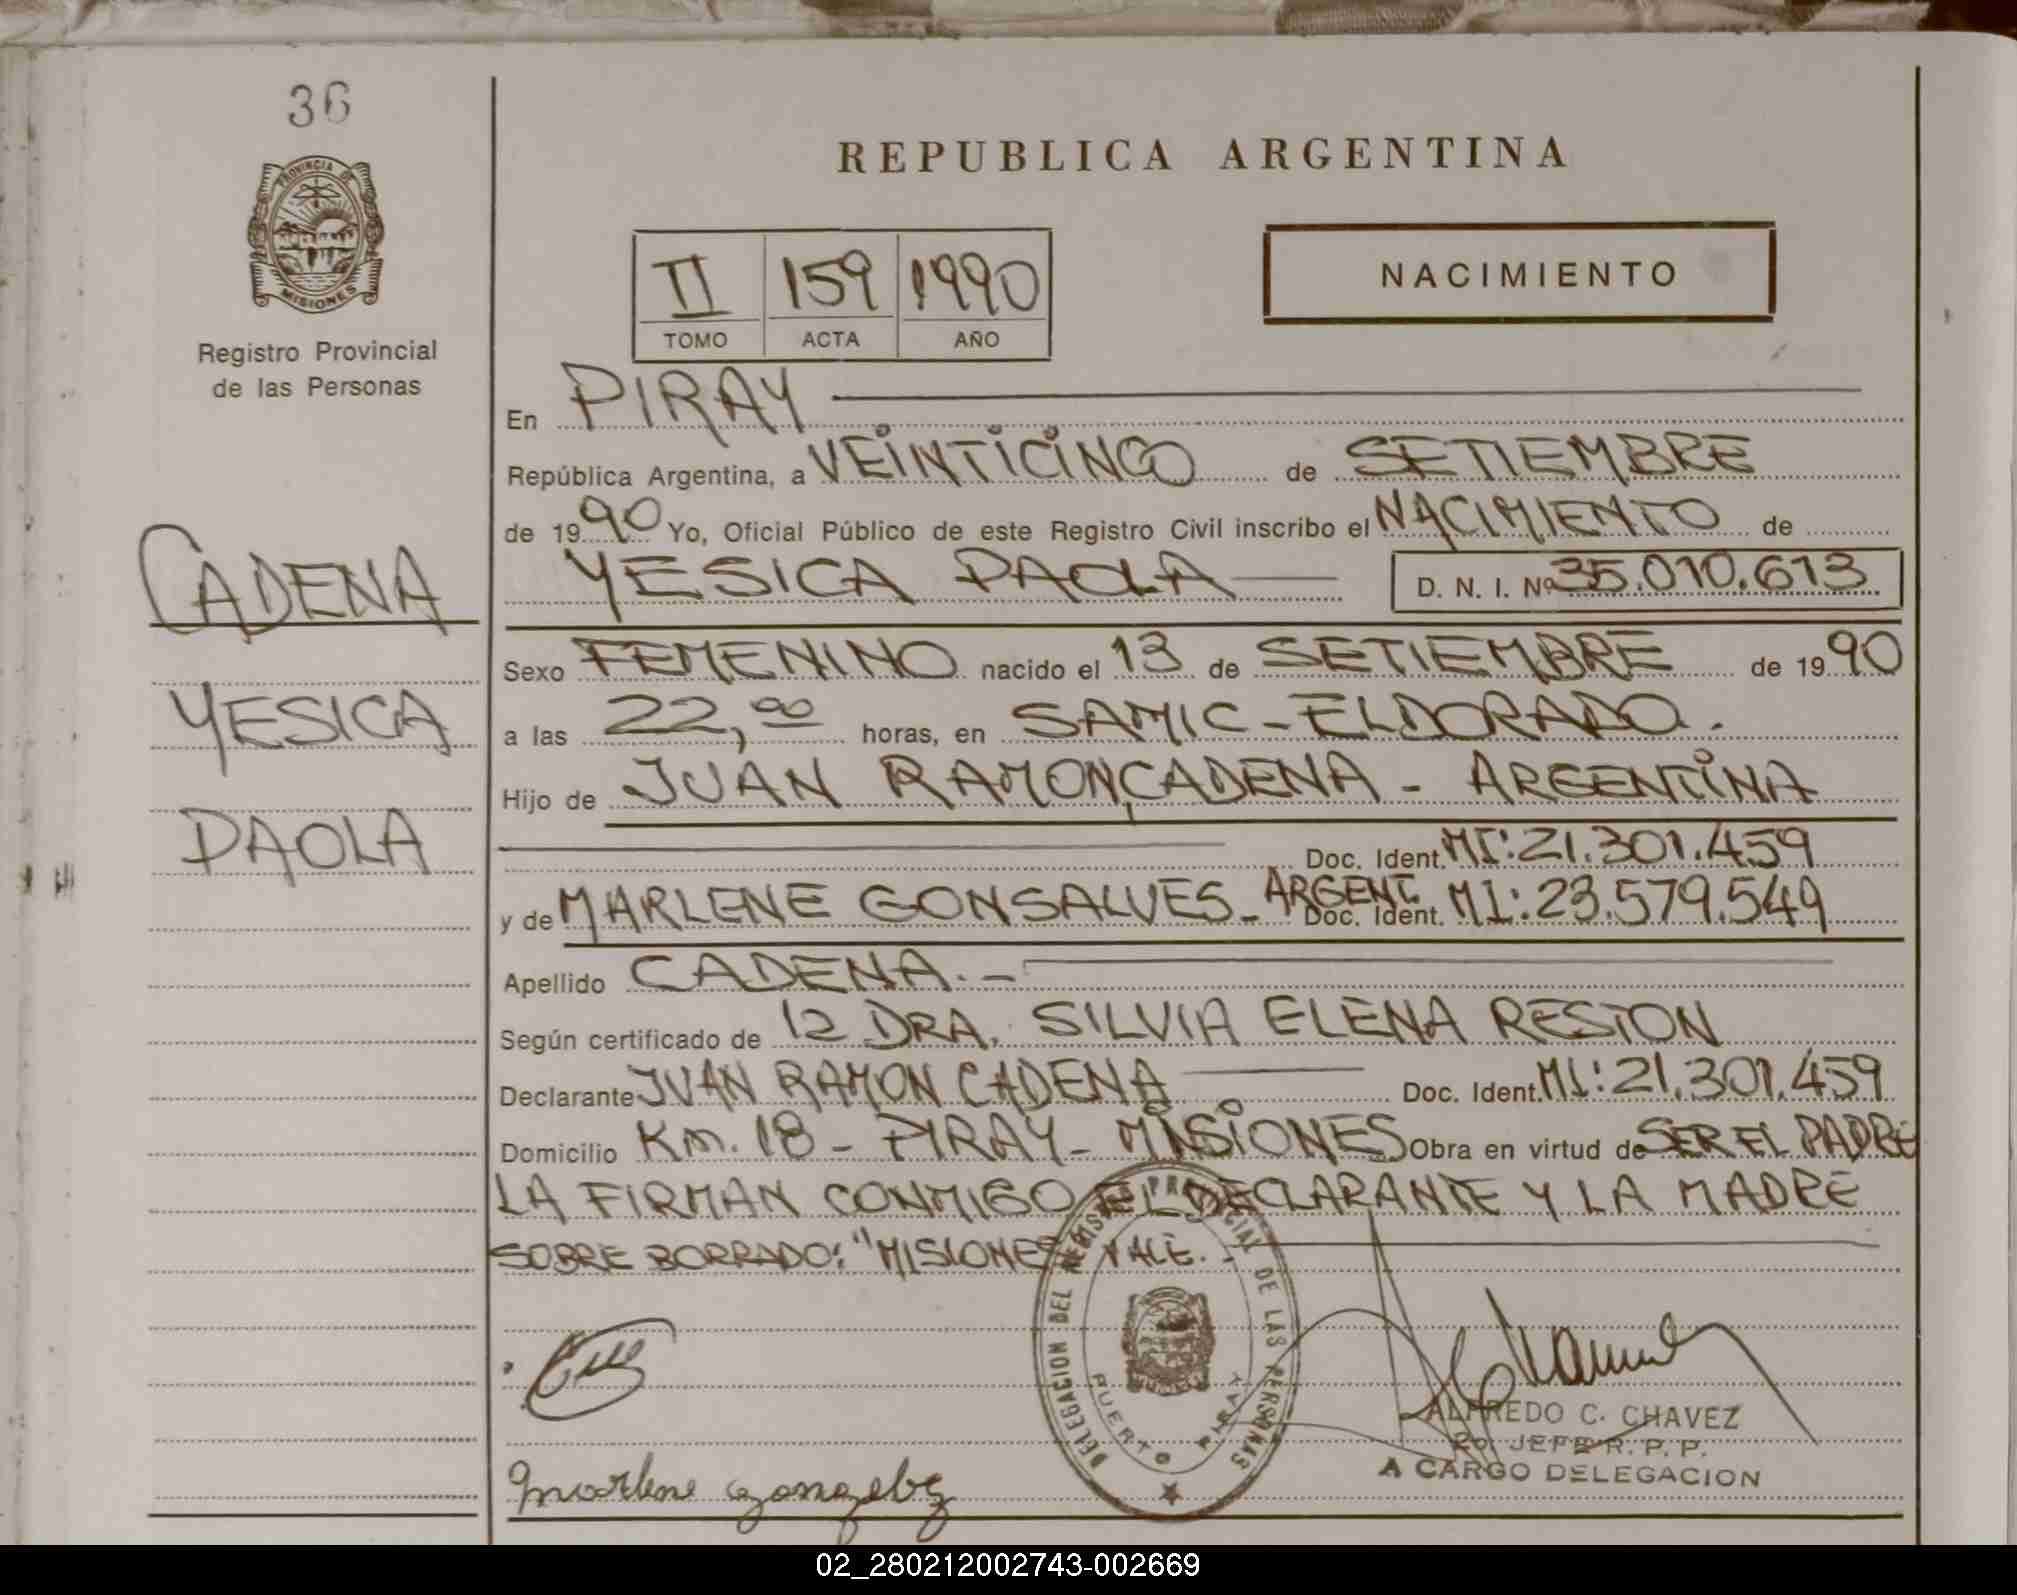 36
PROVINCIA DE
MISIONES
Registro Provincial
de las Personas
CADENA
YESICA
PAOLA
REPUBLICA ARGENTINA
II 159 1990
TOMO ACTA AÑO
NACIMIENTO
En PIRAY
República Argentina, a VEINTICINCO de SETIEMBRE
de 1990 Yo, Oficial Público de este Registro Civil inscribo el NACIMIENTO de
YESICA PAOLA D. N. I. Nº 35.010.613
Sexo FEMENINO nacido el 13 de SETIEMBRE de 1990
a las 22,00 horas, en SAMIC-ELDORADO.
Hijo de JUAN RAMON CADENA - ARGENTINA
Doc. Ident. MI: 21.301.459
y de MARLENE GONSALVES - ARGENT. Doc. Ident. MI: 23.579.549
Apellido CADENA.-
Según certificado de 12 DRA. SILVIA ELENA RESTON
Declarante JUAN RAMON CADENA Doc. Ident. MI: 21.301.459
Domicilio Km. 18 - PIRAY - MISIONES Obra en virtud de SER EL PADRE
LA FIRMAN CONMIGO EL DECLARANTE Y LA MADRE
SOBRE BORRADO: "MISIONES" VALE.-
DELEGACION DEL REGISTRO PROVINCIAL DE LAS PERSONAS
PUERTO PIRAY
ALFREDO C. CHAVEZ
2o. JEFE R. P. P.
A CARGO DELEGACION
Marlene
02_280212002743-002669